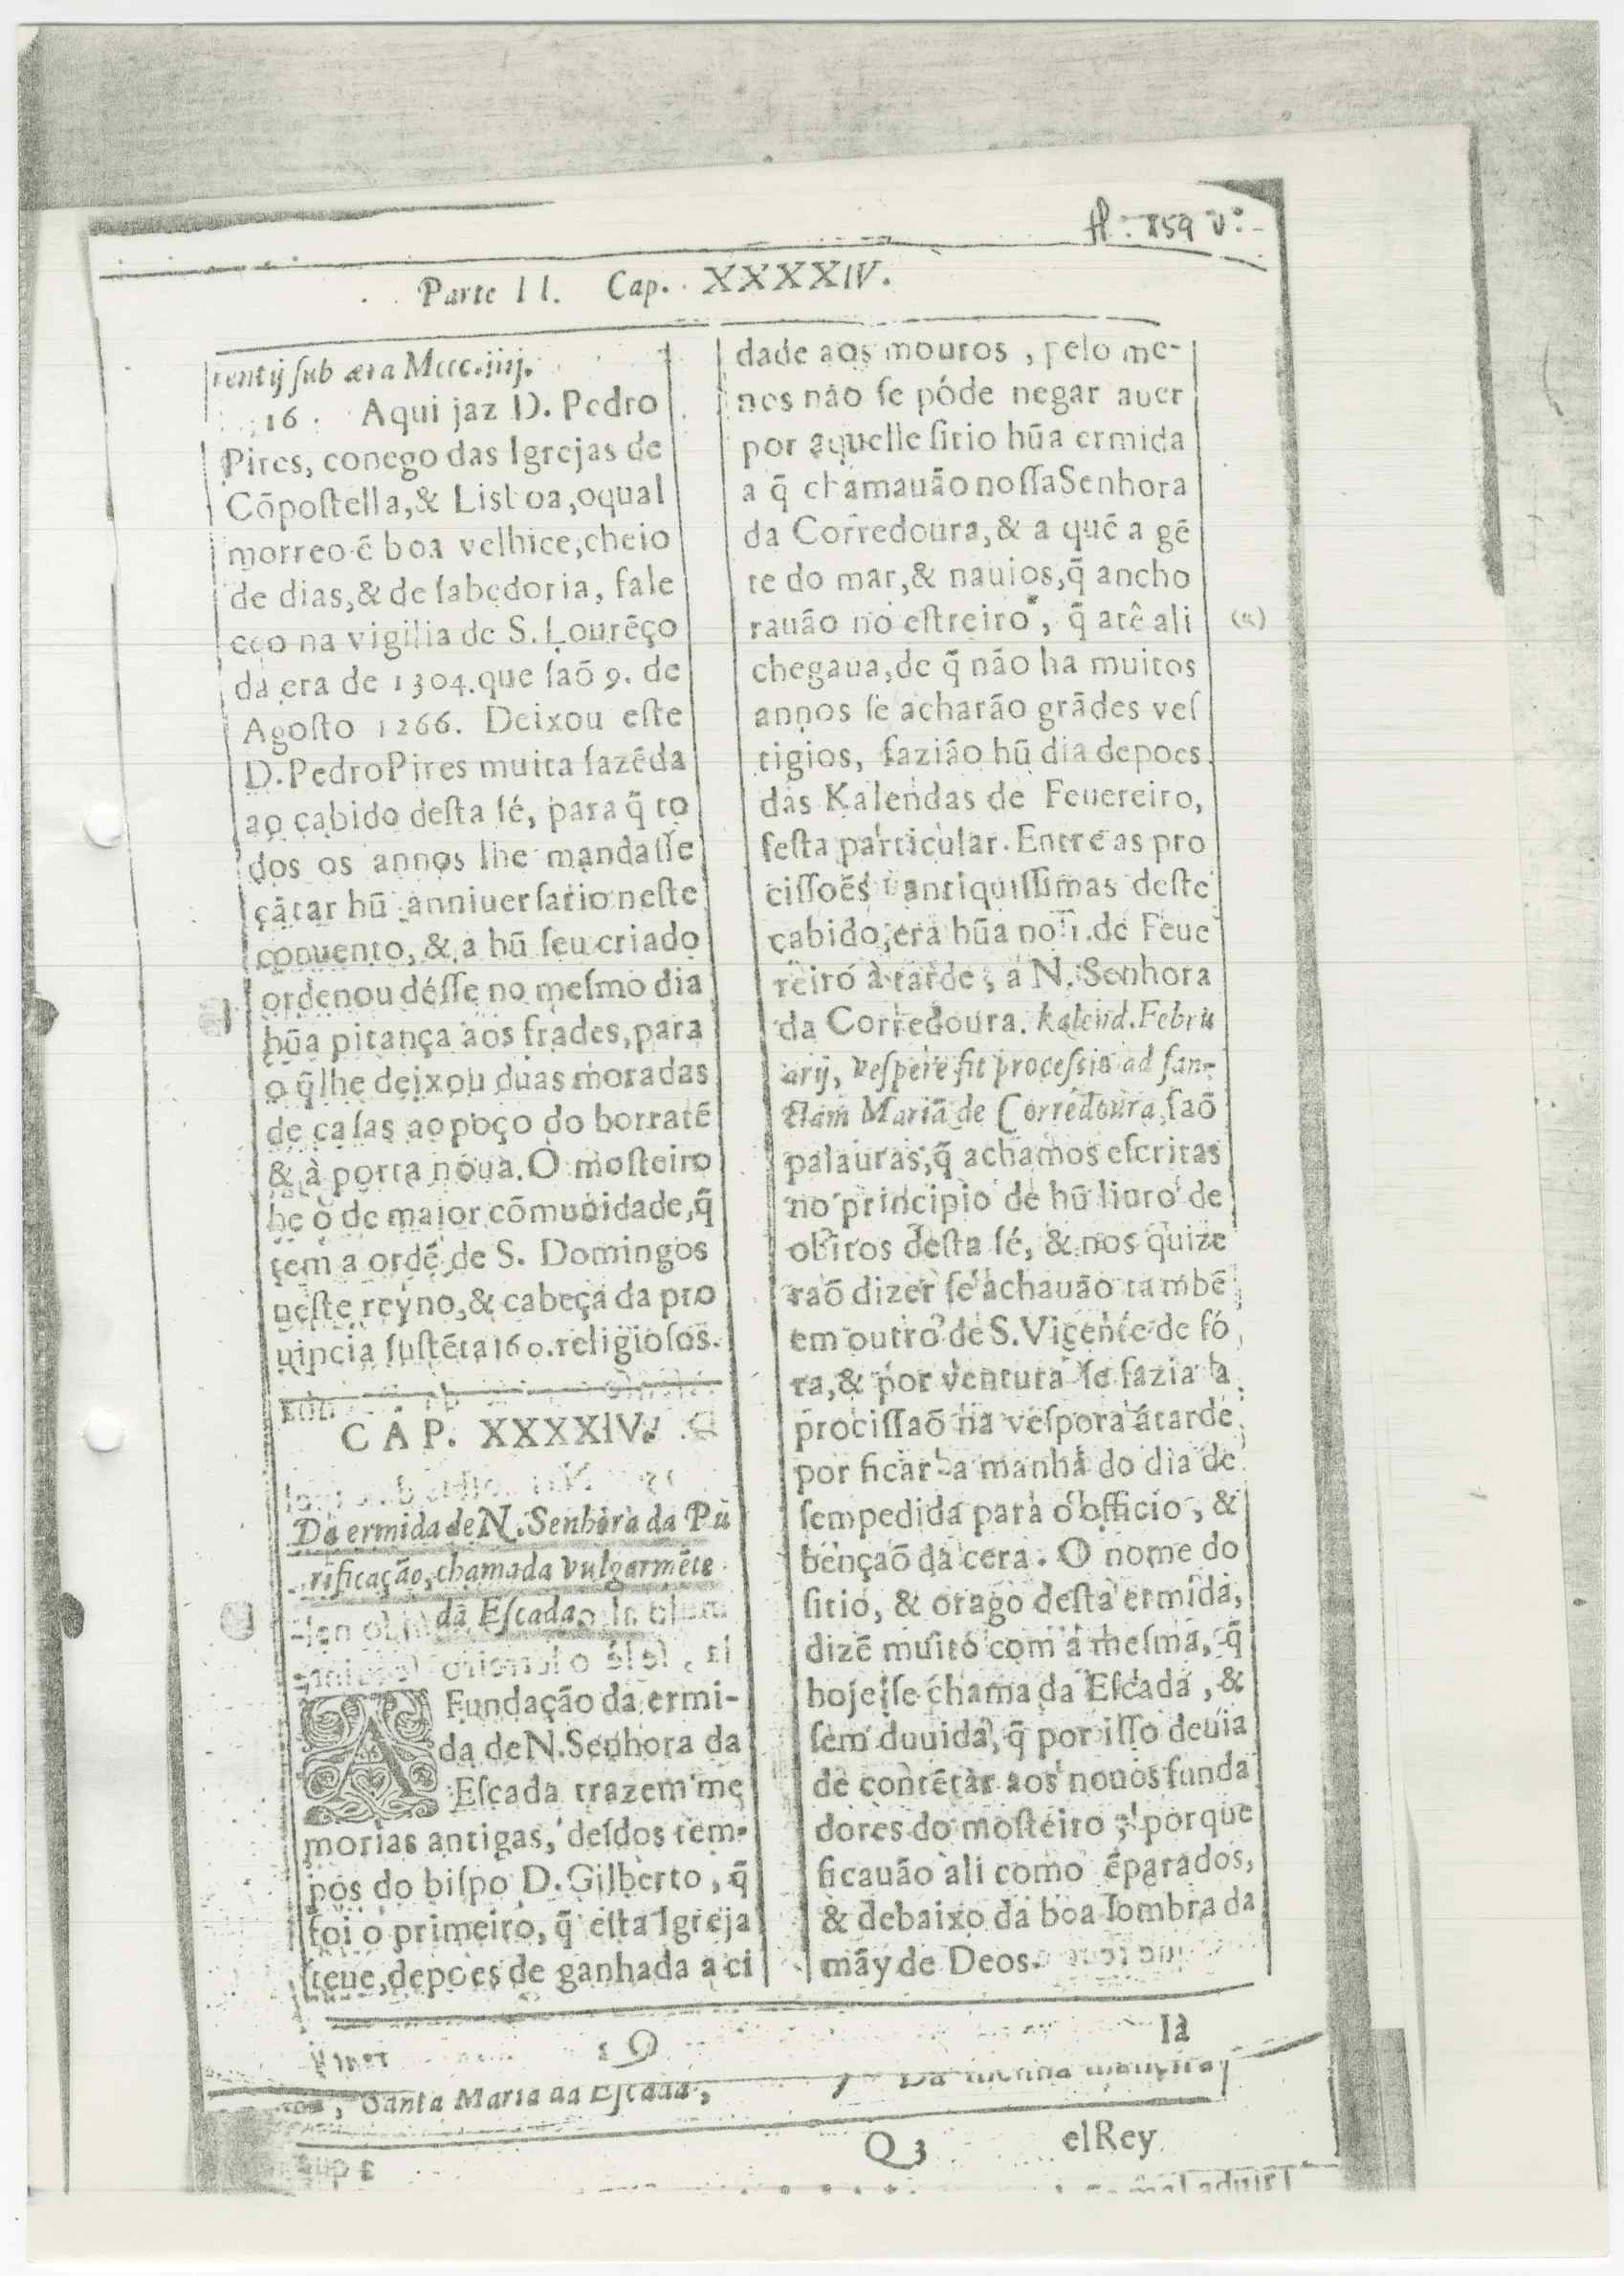 fl: 159 vº
Parte II. Cap. XXXXIV.
rentij ſub æra Mccc.iiij.
16. Aqui jaz D. Pedro
Pires, conego das Igrejas de
Cõpoſtella, & Lisboa, oqual
morreo ẽ boa velhice, cheio
de dias, & de ſabedoria, fale
ceo na vigilia de S. Lourẽço
da era de 1304. que ſaõ 9. de
Agoſto 1266. Deixou eſte
D. Pedro Pires muita fazẽda
ao cabido deſta ſé, para q̃ to
dos os annos lhe mandaſſe
cãtar hũ anniuerſario neſte
conuento, & a hũ ſeu criado
ordenou déſſe no meſmo dia
hũa pitança aos frades, para
o q̃ lhe deixou duas moradas
de caſas ao poço do borratẽ
& à porta noua. O moſteiro
he o de maior cõmunidade, q̃
tem a ordẽ de S. Domingos
neſte reyno, & cabeça da pro
uincia ſuſtẽta 160. religioſos.
CAP. XXXXIV.
Da ermida de N. Senhora da Pu
rificação, chamada vulgarmẽte
da Eſcada.
A Fundação da ermi-
da de N. Senhora da
Eſcada trazem me
morias antigas, deſdos tem-
pos do biſpo D. Gilberto, q̃
foi o primeiro, q̃ eſta Igreja
teue, depoes de ganhada a ci
dade aos mouros, pelo me-
nos não ſe póde negar auer
por aquelle ſitio hũa ermida
a q̃ chamauão noſſa Senhora
da Corredoura, & a quẽ a gẽ
te do mar, & nauios, q̃ ancho
rauão no eſtreiro, q̃ atê ali
(a)
chegaua, de q̃ não ha muitos
annos ſe acharão grãdes veſ
tigios, fazião hũ dia depoes
das Kalendas de Feuereiro,
feſta particular. Entre as pro
ciſſoẽs antiquiſſimas deſte
cabido, era hũa no 1. de Feue
reiro à tarde, a N. Senhora
da Corredoura. Kalend. Febru
arij, veſpere fit proceſſio ad ſan-
ctam Mariã de Corredoura, ſaõ
palauras, q̃ achamos eſcritas
no principio de hũ liuro de
obitos deſta ſé, & nos quize
raõ dizer ſe achauão tambẽ
em outro de S. Vicente de fó
ra, & por ventura ſe fazia a
prociſſaõ na veſpora á tarde
por ficar a manhã do dia de
ſempedida para o officio, &
bençaõ da cera. O nome do
ſitio, & orago deſta ermida,
dizẽ muito com a meſma, q̃
hoje ſe chama da Eſcada, &
ſem duuida, q̃ por iſſo deuia
de contẽtar aos nouos funda
dores do moſteiro, porque
ficauão ali como ẽparados,
& debaixo da boa ſombra da
mãy de Deos.
Ià
Santa Maria da Eſcada,
Da meſma maneira
Q3 elRey